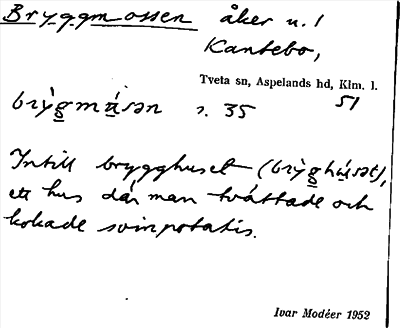 Bryggmossen åker u. 1
Kantebo,
Tveta sn, Aspelands hd, Klm. l.
51
brỳg̲mu̲̇sən s. 35
Intill brygghuset (brỳg̲hu̲̇sət),
ett hus där man tvättade och
kokade svinpotatis.
Ivar Modéer 1952